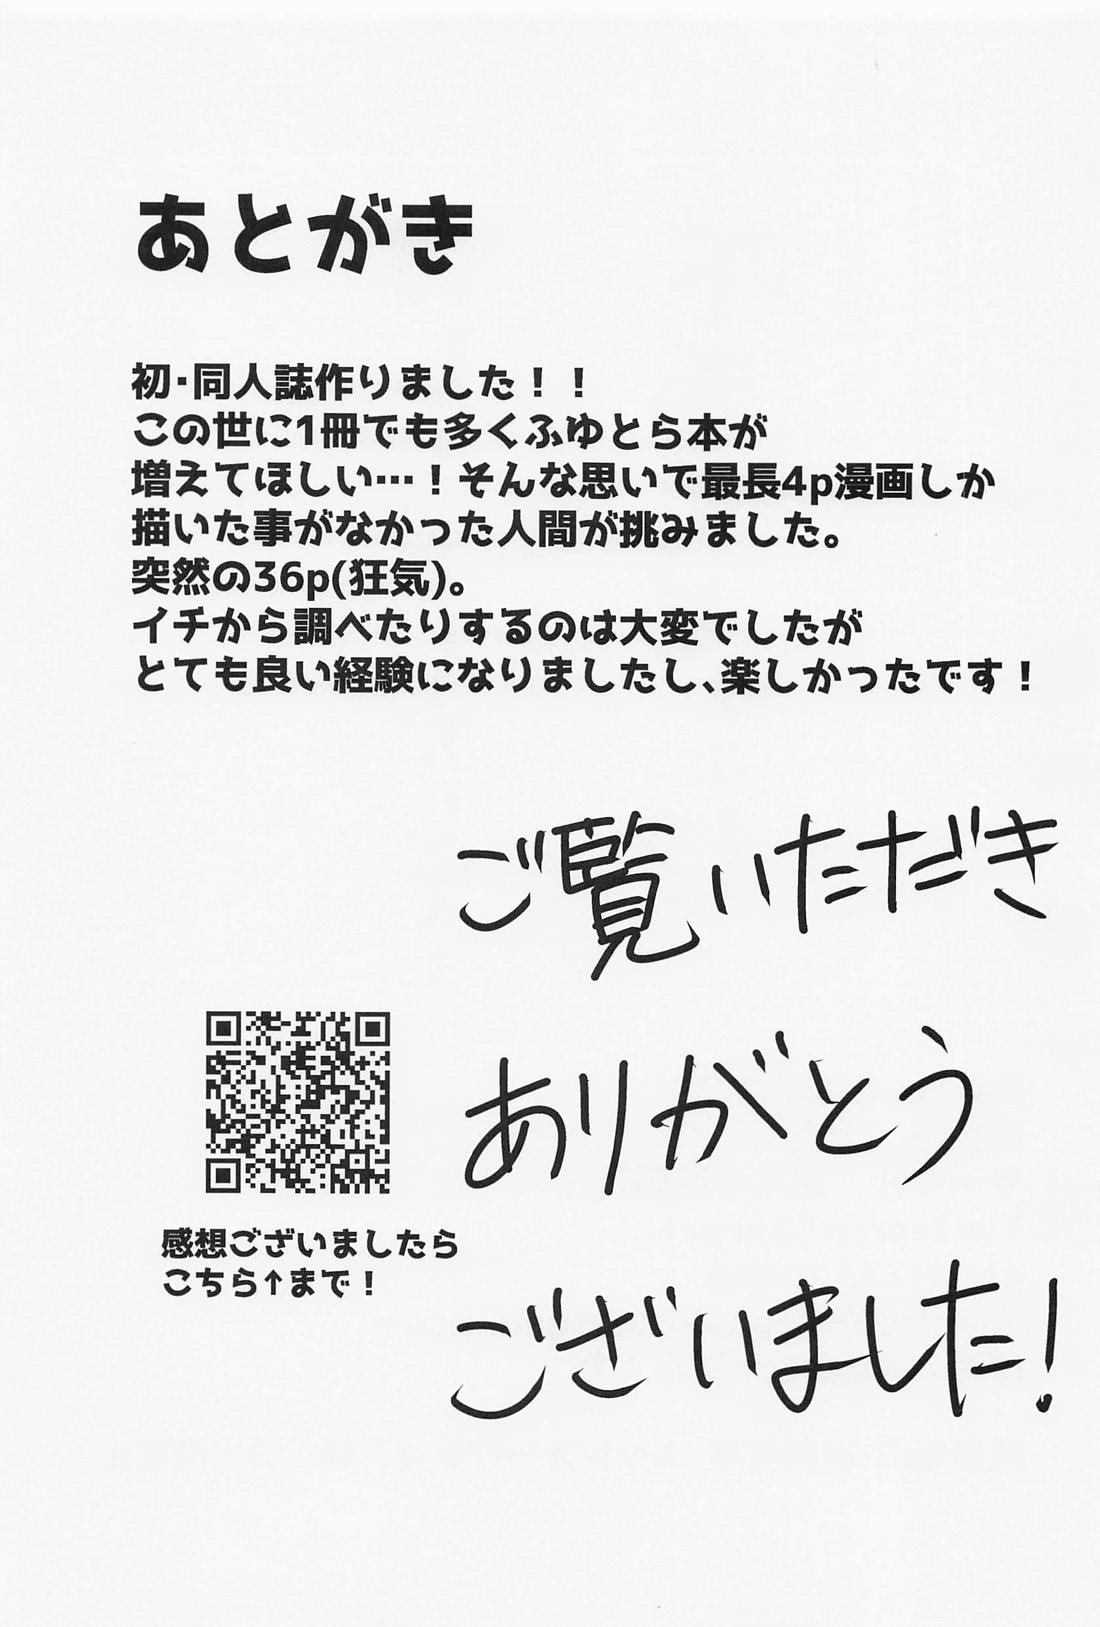 あとがき
初・同人誌作りました！！
この世に1冊でも多くふゆとら本が
増えてほしい…！そんな思いで最長4p漫画しか
描いた事がなかった人間が挑みました。
突然の36p(狂気)。
イチから調べたりするのは大変でしたが
とても良い経験になりましたし、楽しかったです！
ご覧いただき
ありがとう
ございました！
感想ございましたら
こちら↑まで！